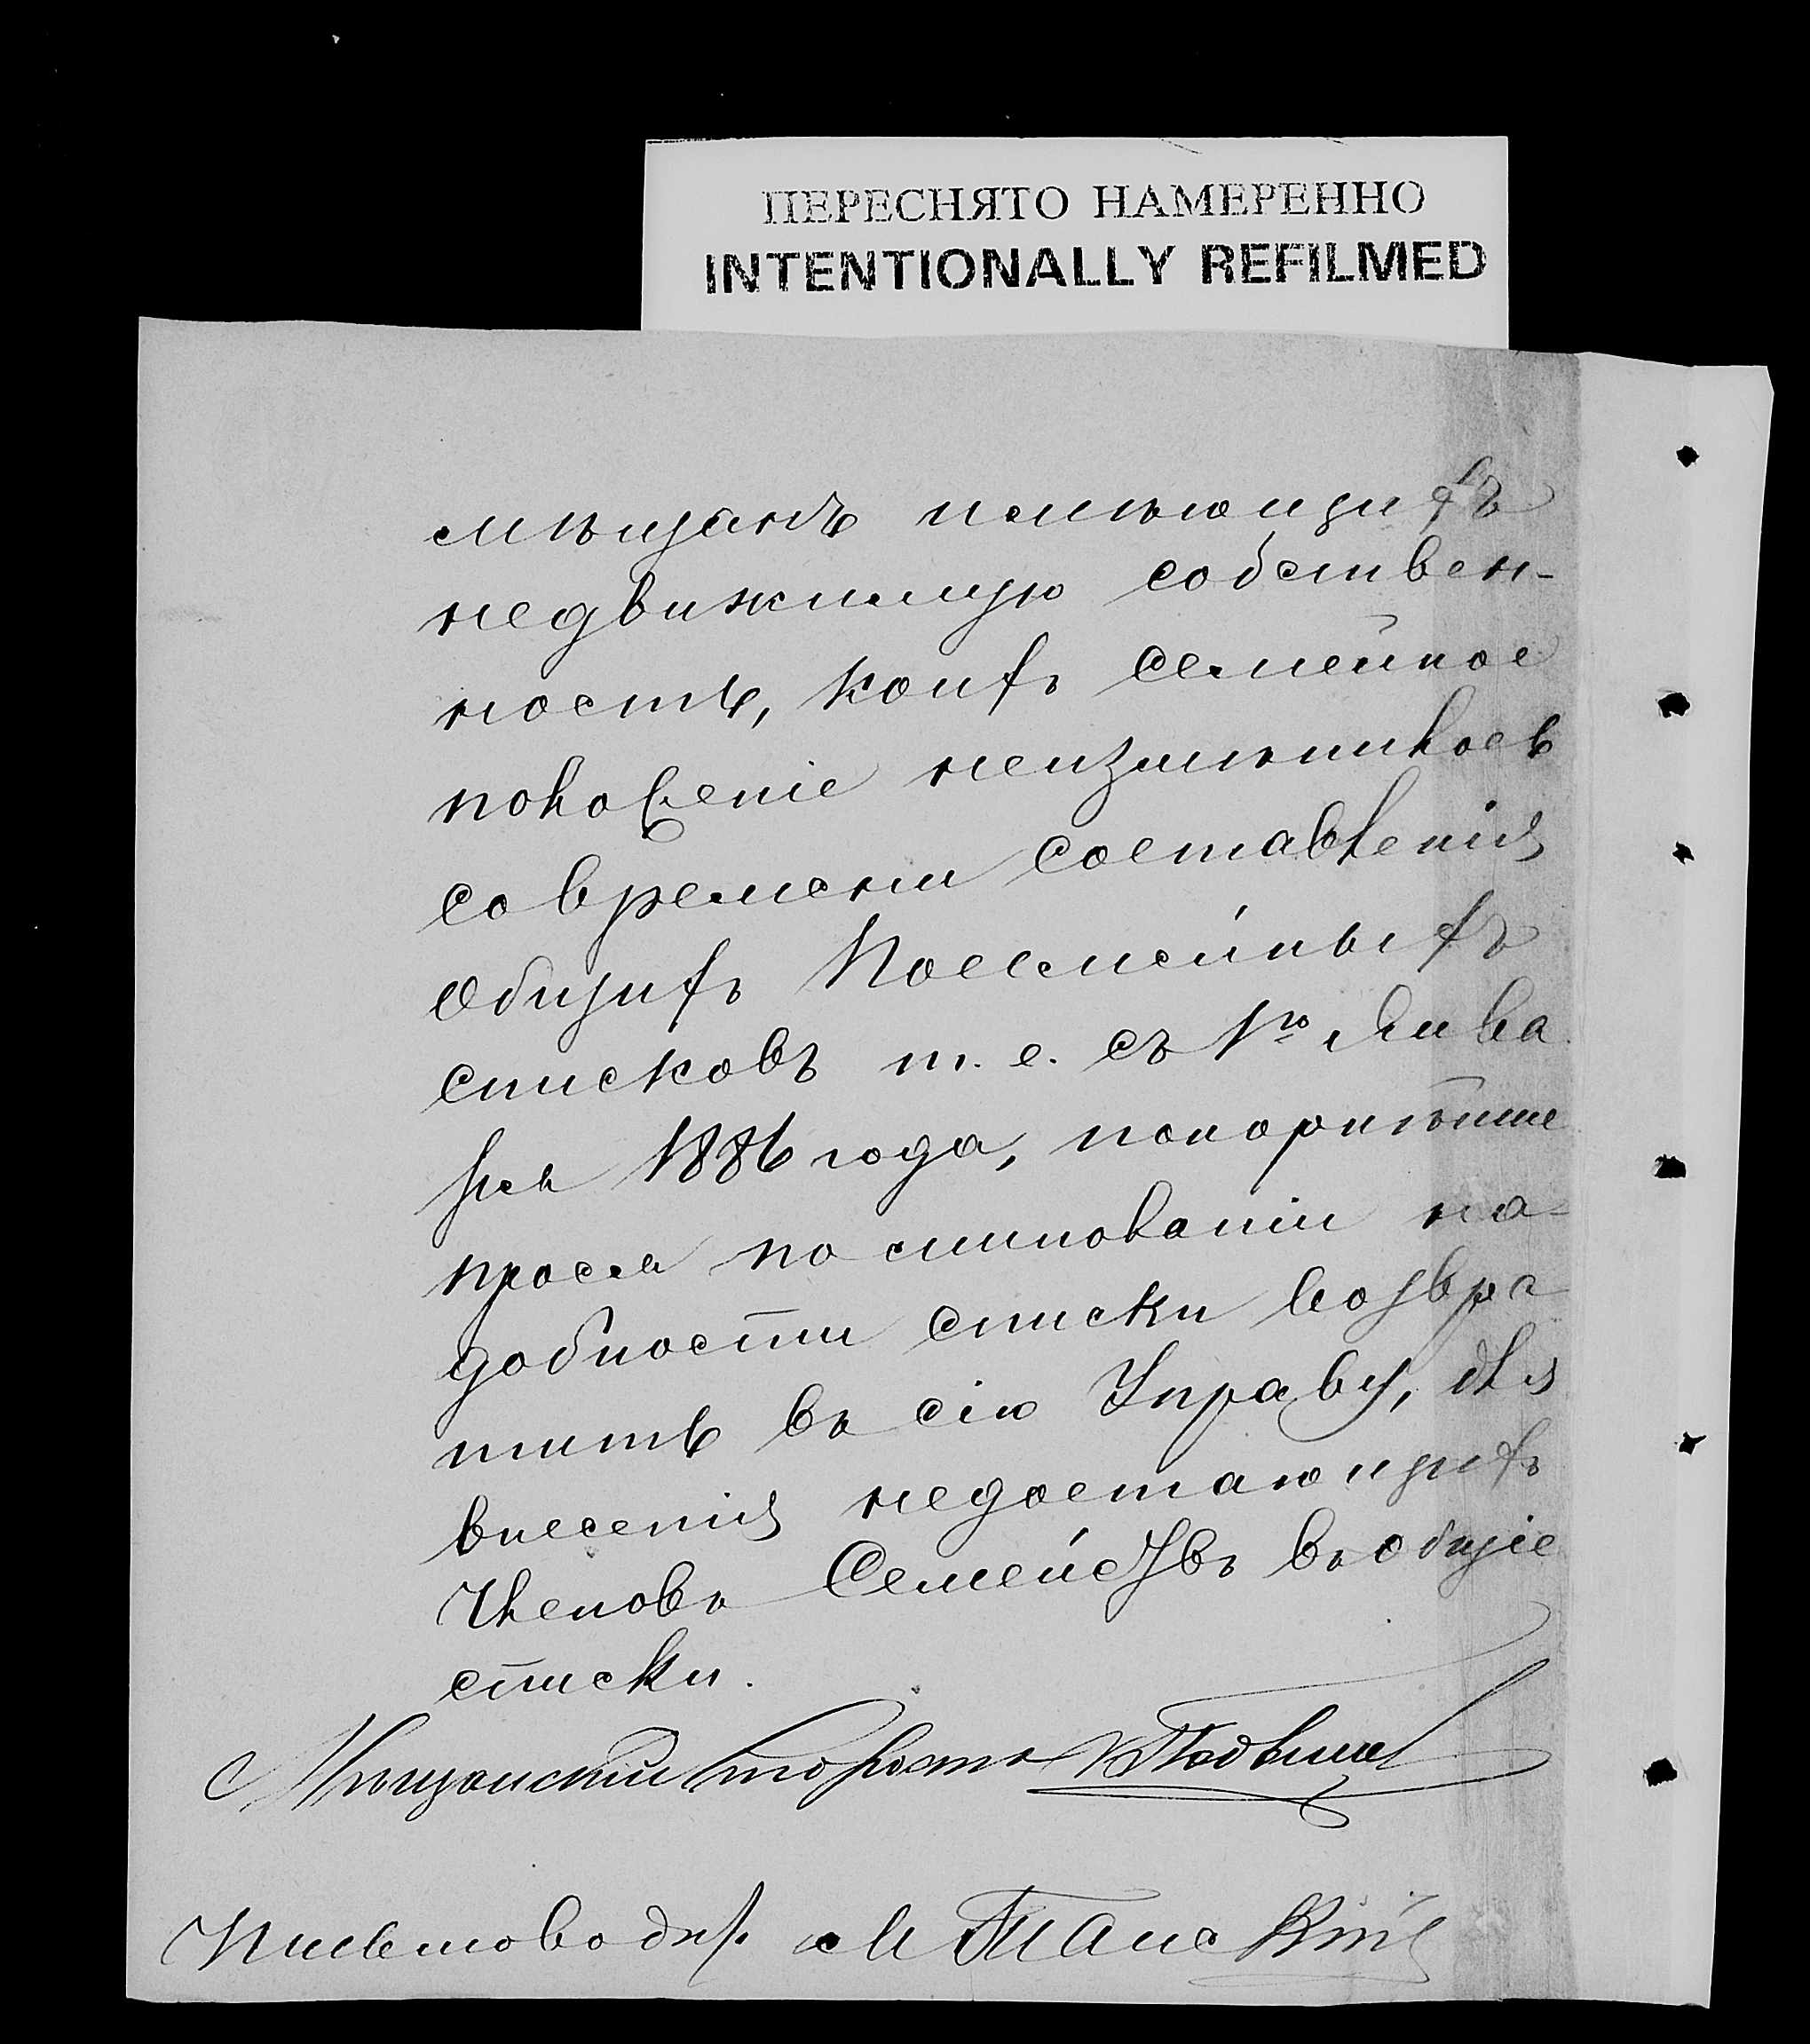 ПЕРЕСНЯТО НАМЕРЕННО
INTENTIONALLY REFILMED
мѣщанъ имѣющихъ
недвижимую собствен-
ность, коихъ семейное
положеніе неизмѣнилось
со времени составленія
Общихъ Посемейныхъ
списковъ т. е. съ 1го Янва
ря 1886 года, покорнѣйше
прося по минованіи на-
добности списки возвра
тить въ сію Управу, для
внесенія недостающихъ
Членовъ Семействъ въ общіе
списки.
Мѣщанскій Староста
Письмоводи.